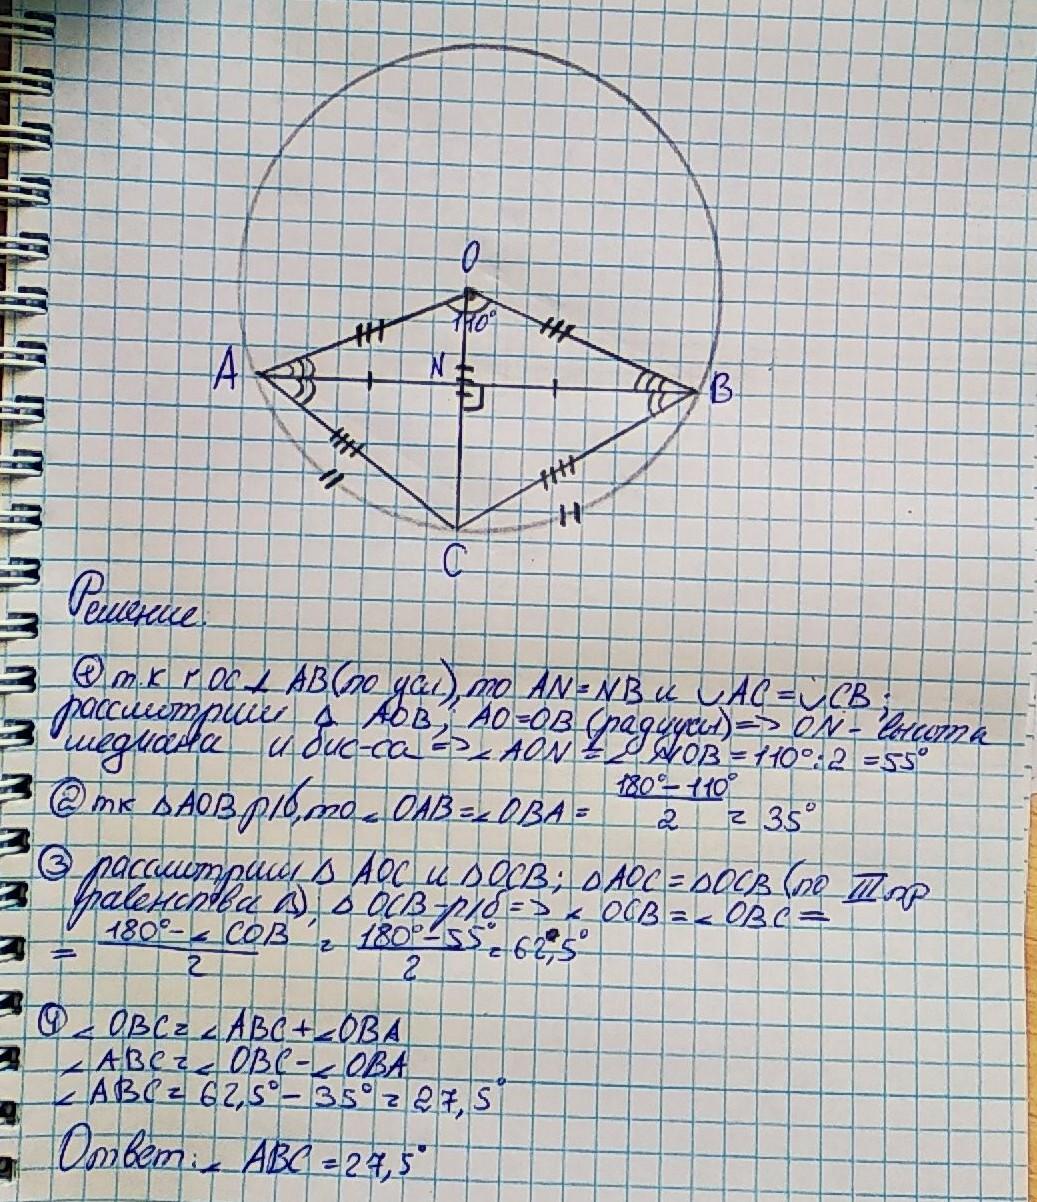 O
110°
A
N
B
C
Решение.
① т.к r OC ⊥ AB (по усл), то AN = NB и ∪AC = ∪CB;
рассмотрим Δ AOB; AO=OB (радиусы) => ON - высота
медиана и бис-са => ∠AON = ∠NOB = 110° : 2 = 55°
② тк ΔAOB р/б, то ∠OAB = ∠OBA = (180° - 110°)/2 = 35°
③ рассмотрим Δ AOC и ΔOCB; ΔAOC = ΔOCB (по III пр
равенства Δ); Δ OCB - р/б => ∠ OCB = ∠ OBC =
= (180° - ∠COB)/2 = (180° - 55°)/2 = 62,5°
④ ∠ OBC = ∠ ABC + ∠OBA
∠ ABC = ∠ OBC - ∠OBA
∠ ABC = 62,5° - 35° = 27,5°
Ответ: ∠ ABC = 27,5°